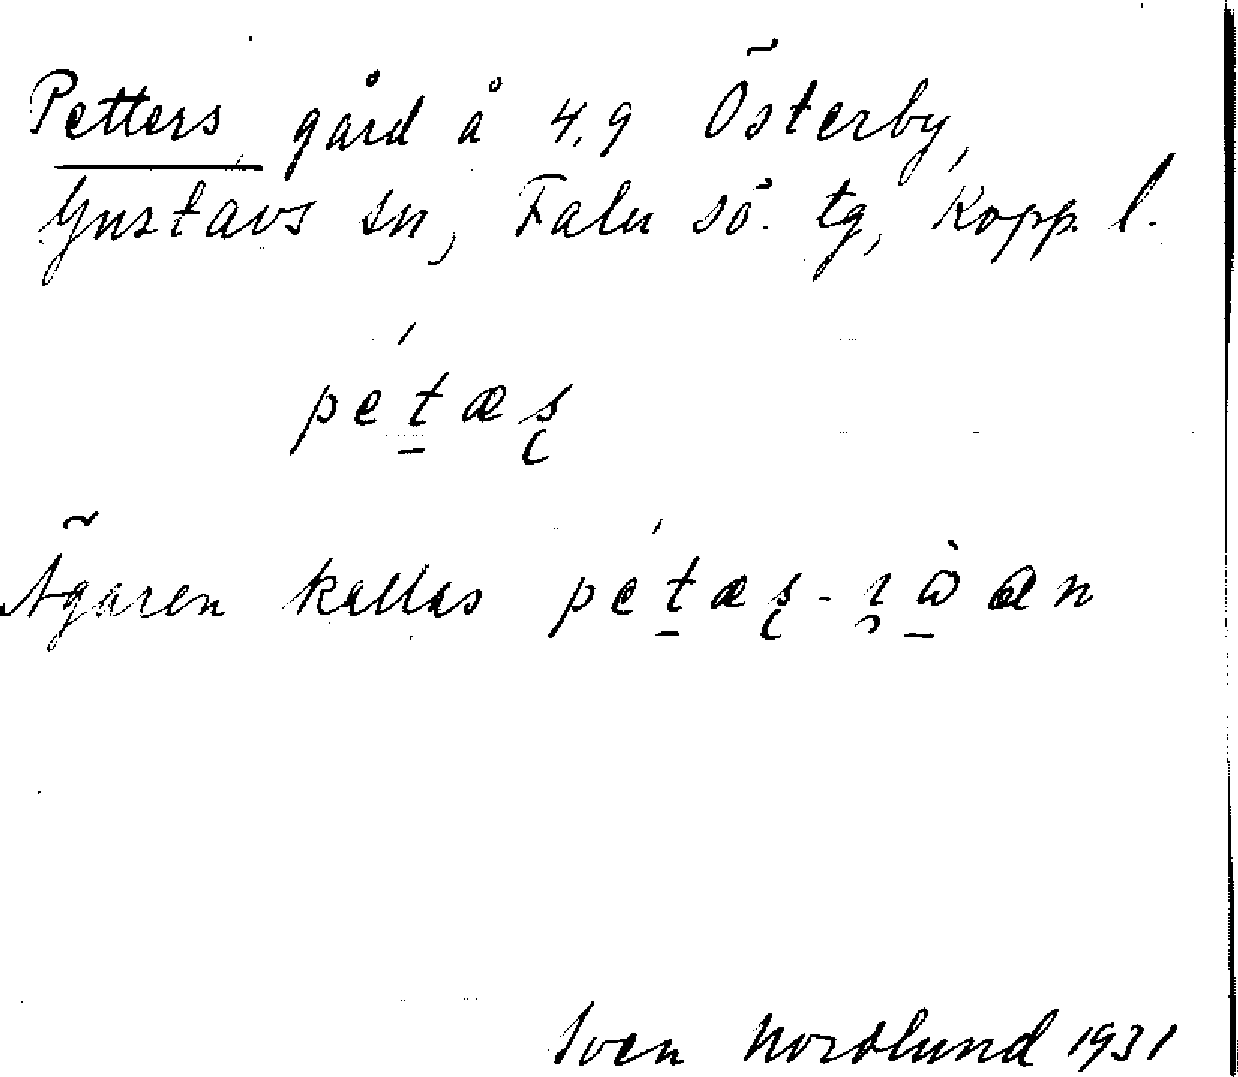 Petters, gård å 4,9 Österby,
Gustavs sn, Falu sö. tg, Kopp. l.
pet̠æş
Ägaren kallas
Sven Nordlund 1931